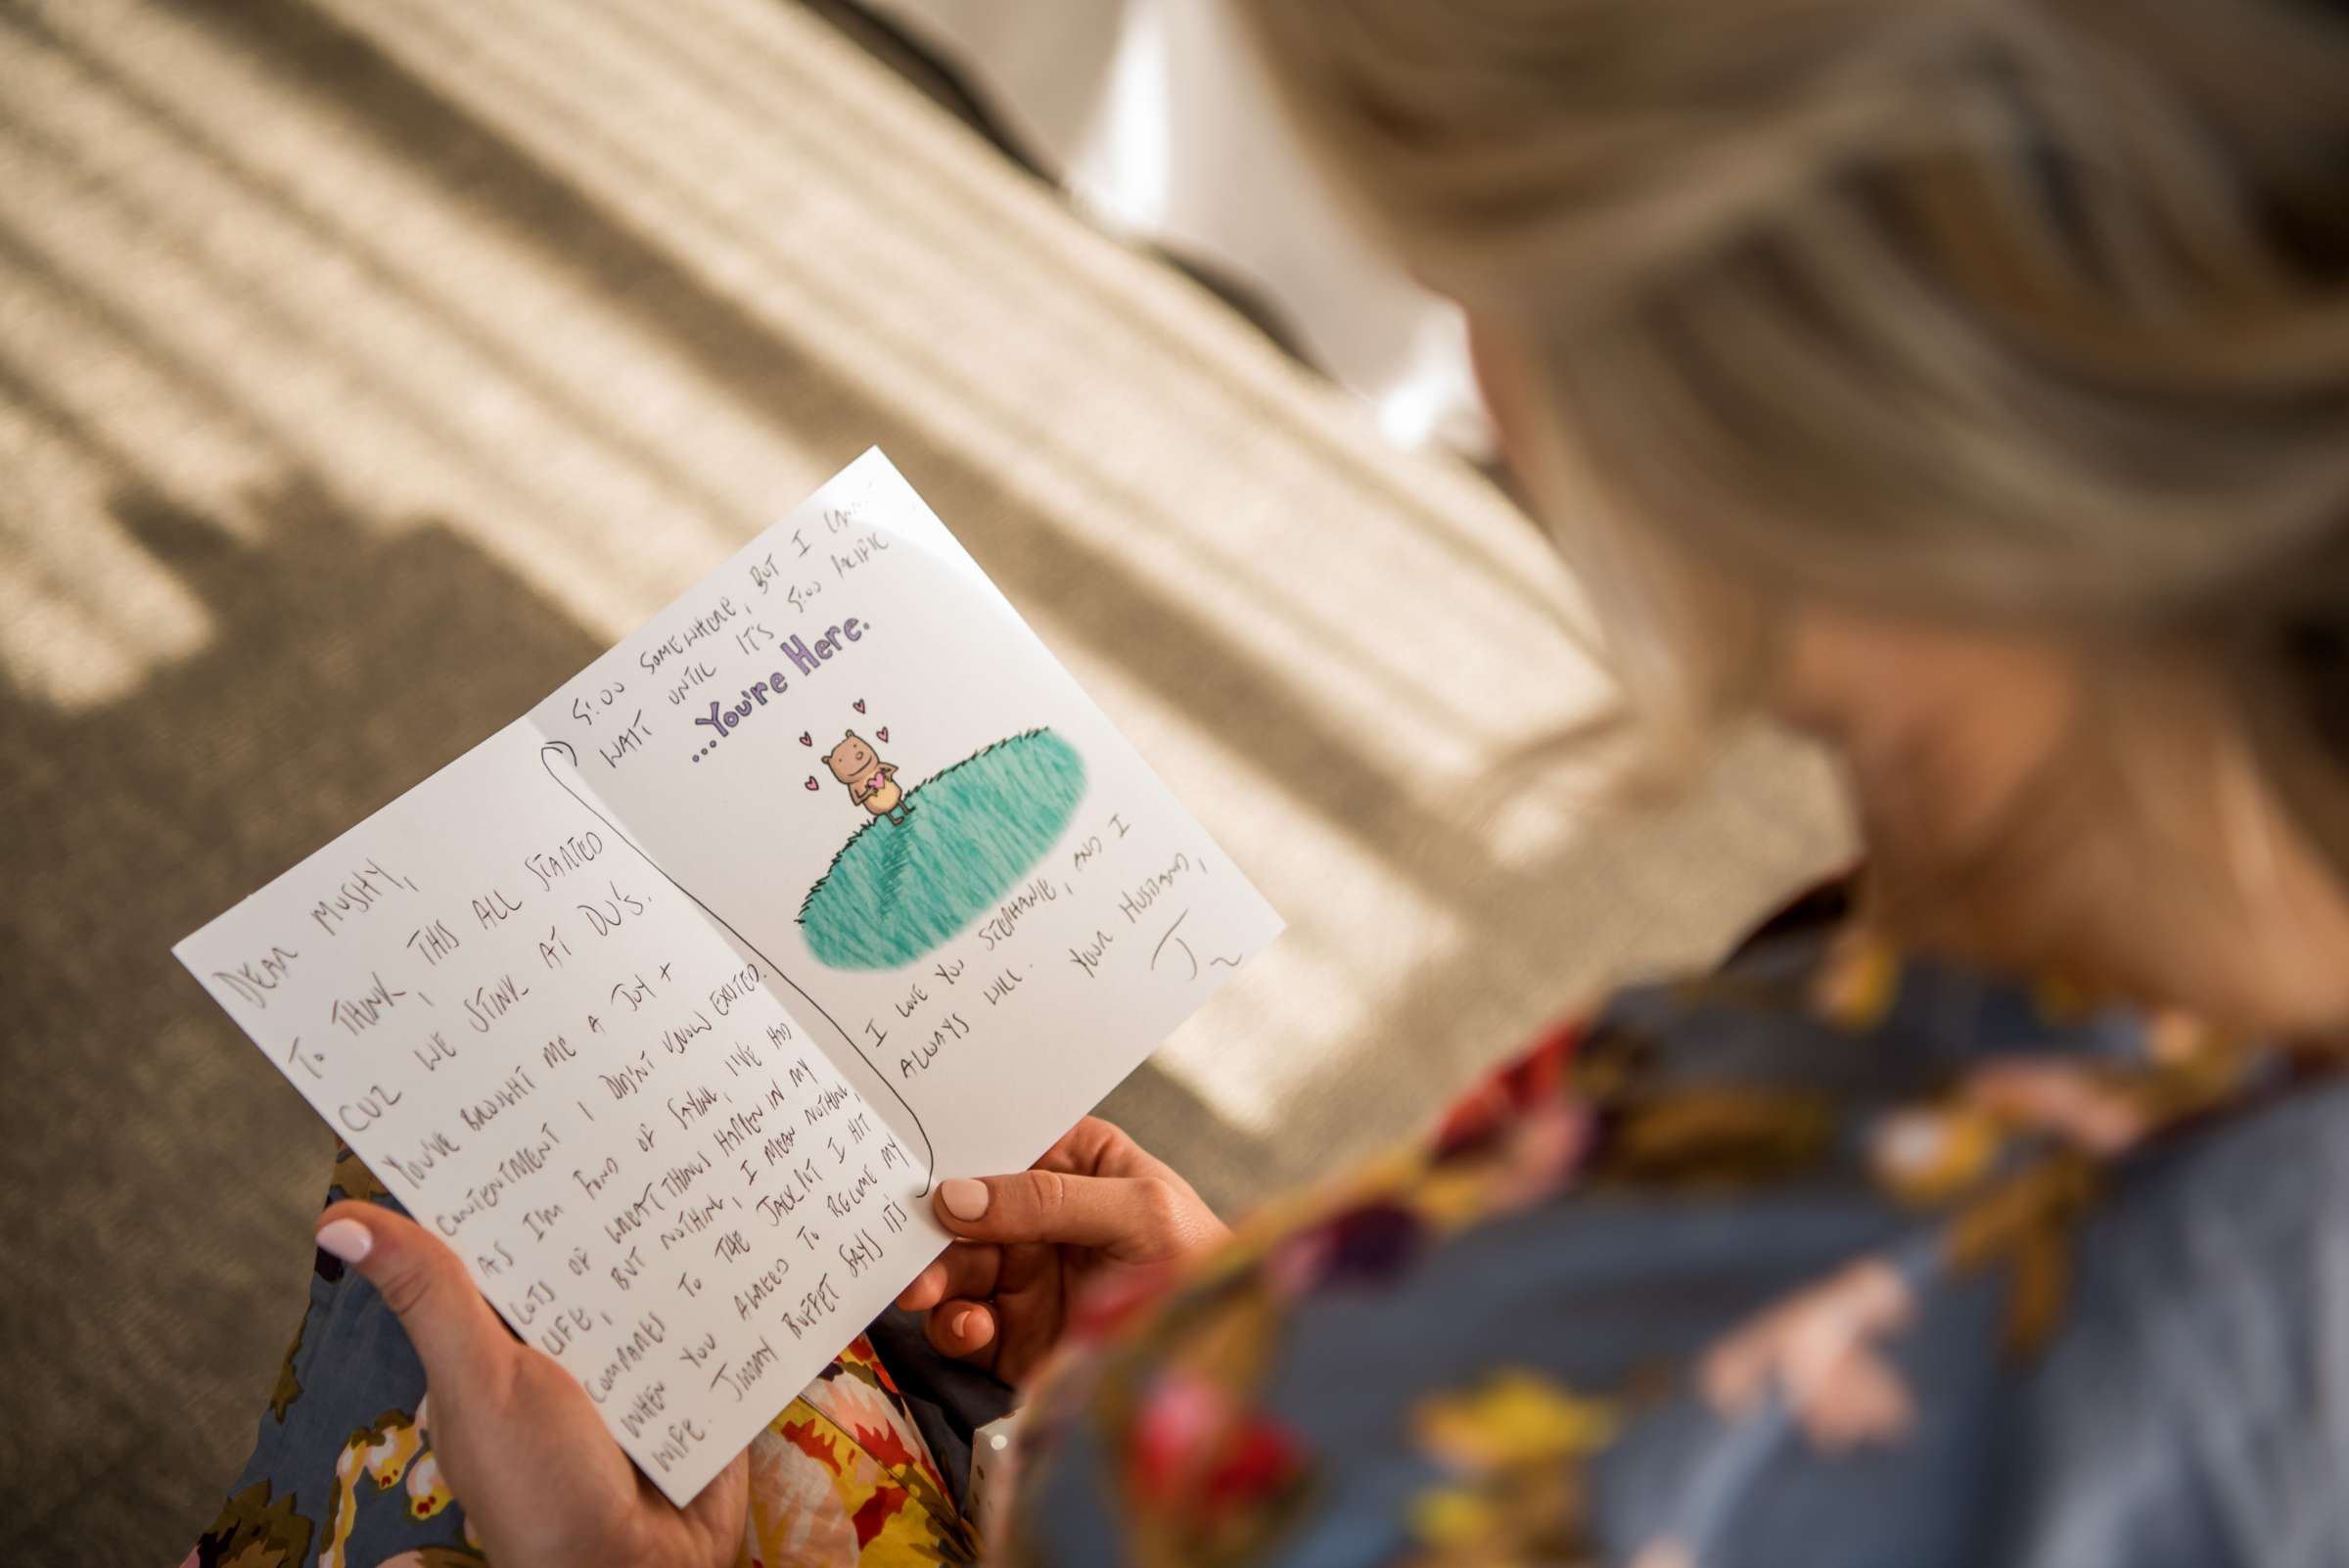 DEAR MUSHY,
TO THINK, THIS ALL STARTED
CUZ WE STINK AT DU'S.
YOU'VE BROUGHT ME A JOY +
CONTENTMENT I DIDN'T KNOW EXISTED.
AS I'M FOND OF SAYING, I'VE HAD
LOTS OF GREAT THINGS HAPPEN IN MY
LIFE, BUT NOTHING, I MEAN NOTHING,
COMPARES TO THE JACKPOT I HIT
WHEN YOU AGREED TO BECOME MY
WIFE. JIMMY BUFFET SAYS IT'S
5:00 SOMEWHERE, BUT I
WAIT UNTIL IT'S 5:00 PACIFIC
...You're Here.
I LOVE YOU STEPHANIE, AND I
ALWAYS WILL.
YOUR HUSBAND,
J